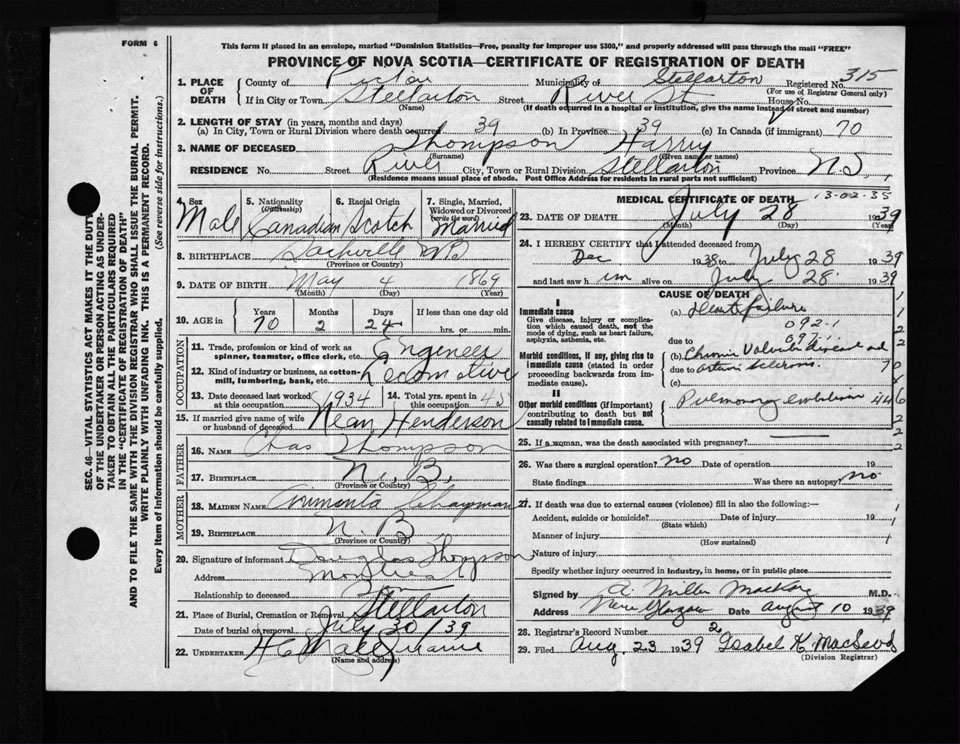 FORM 6
This form if placed in an envelope, marked "Dominion Statistics—Free, penalty for improper use $300," and properly addressed will pass through the mail "FREE"
PROVINCE OF NOVA SCOTIA—CERTIFICATE OF REGISTRATION OF DEATH
1. PLACE OF DEATH County of Pictou Municipality of Stellarton Registered No. 315
(For use of Registrar General only)
If in City or Town Stellarton Street River St. House No.
(Name) (If death occurred in a hospital or institution, give the name instead of street and number)
2. LENGTH OF STAY (in years, months and days)
(a) In City, Town or Rural Division where death occurred 39 (b) In Province 39 (c) In Canada (if immigrant) 70
3. NAME OF DECEASED Thompson Harry
(Surname) (Given name or names)
RESIDENCE No. Street River City, Town or Rural Division Stellarton Province N.S.
(Residence means usual place of abode. Post Office Address for residents in rural parts not sufficient)
4. Sex Male
5. Nationality (Citizenship) Canadian
6. Racial Origin Scotch
7. Single, Married, Widowed or Divorced (write the word) Married
8. BIRTHPLACE Sackville N.B.
(Province or Country)
9. DATE OF BIRTH May 4 1869
(Month) (Day) (Year)
10. AGE in Years Months Days If less than one day old
70 2 24 hrs. or min.
OCCUPATION
11. Trade, profession or kind of work as spinner, teamster, office clerk, etc. Engineer
12. Kind of industry or business, as cotton-mill, lumbering, bank, etc. Locomotive
13. Date deceased last worked at this occupation 1934
14. Total yrs. spent in this occupation 45
15. If married give name of wife or husband of deceased Henderson
FATHER
16. NAME Chas Thompson
17. BIRTHPLACE N. B.
(Province or Country)
MOTHER
18. MAIDEN NAME Chapman
19. BIRTHPLACE N. B
(Province or Country)
20. Signature of informant Douglas Thompson
Address Montreal
Relationship to deceased Son
21. Place of Burial, Cremation or Removal Stellarton
Date of burial or removal July 30/39
22. UNDERTAKER
(Name and address)
MEDICAL CERTIFICATE OF DEATH
13-02-35
23. DATE OF DEATH July 28 1939
(Month) (Day) (Year)
24. I HEREBY CERTIFY that I attended deceased from
Dec 1938 to July 28 1939
and last saw him alive on July 28 1939
CAUSE OF DEATH
I
Immediate cause
Give disease, injury or complication which caused death, not the mode of dying, such as heart failure, asphyxia, asthenia, etc.
(a) Heart failure
092-1
due to
Morbid conditions, if any, giving rise to immediate cause (stated in order proceeding backwards from immediate cause).
(b) Chronic Valvular disease and
due to arterio sclerosis
(c)
II
Other morbid conditions (if important) contributing to death but not causally related to immediate cause.
Pulmonary
25. If a woman, was the death associated with pregnancy?
26. Was there a surgical operation? no Date of operation 19
State findings Was there an autopsy? no
27. If death was due to external causes (violence) fill in also the following:—
Accident, suicide or homicide? Date of injury 19
(State which)
Manner of injury
(How sustained)
Nature of injury
Specify whether injury occurred in industry, in home, or in public place
Signed by A. Miller MacKay M.D.
Address New Glasgow Date August 10 1939
28. Registrar's Record Number 2
29. Filed Aug. 23 1939 Isabel K. MacLeod
(Division Registrar)
SEC. 46—VITAL STATISTICS ACT MAKES IT THE DUTY OF THE UNDERTAKER OR PERSON ACTING AS UNDERTAKER TO OBTAIN ALL THE PARTICULARS REQUIRED IN THE "CERTIFICATE OF REGISTRATION OF DEATH" AND TO FILE THE SAME WITH THE DIVISION REGISTRAR WHO SHALL ISSUE THE BURIAL PERMIT.
WRITE PLAINLY WITH UNFADING INK. THIS IS A PERMANENT RECORD.
Every item of information should be carefully supplied. (See reverse side for instructions.)